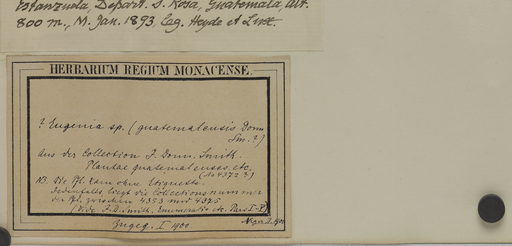 Estanzuela, Depart. S. Rosa, Guatemala, alt.
800 m., M. Jan. 1893 leg. Heyde et Lux.
HERBARIUM REGIUM MONACENSE.
? Eugenia sp. (guatemalensis Donn.
Sm. ?)
Aus der Collection J. Donn. Smith.
Plantae guatemalenses etc.
(No 4372 ?)
NB. Die Pfl. kam ohne Etiquette.
Jedenfalls liegt die Collectionsnummer
der Pfl. zwischen 4353 und 4375
(Vide J. D. Smith, Enumeratio etc. Pars I-V)
Zugeg. I 1900